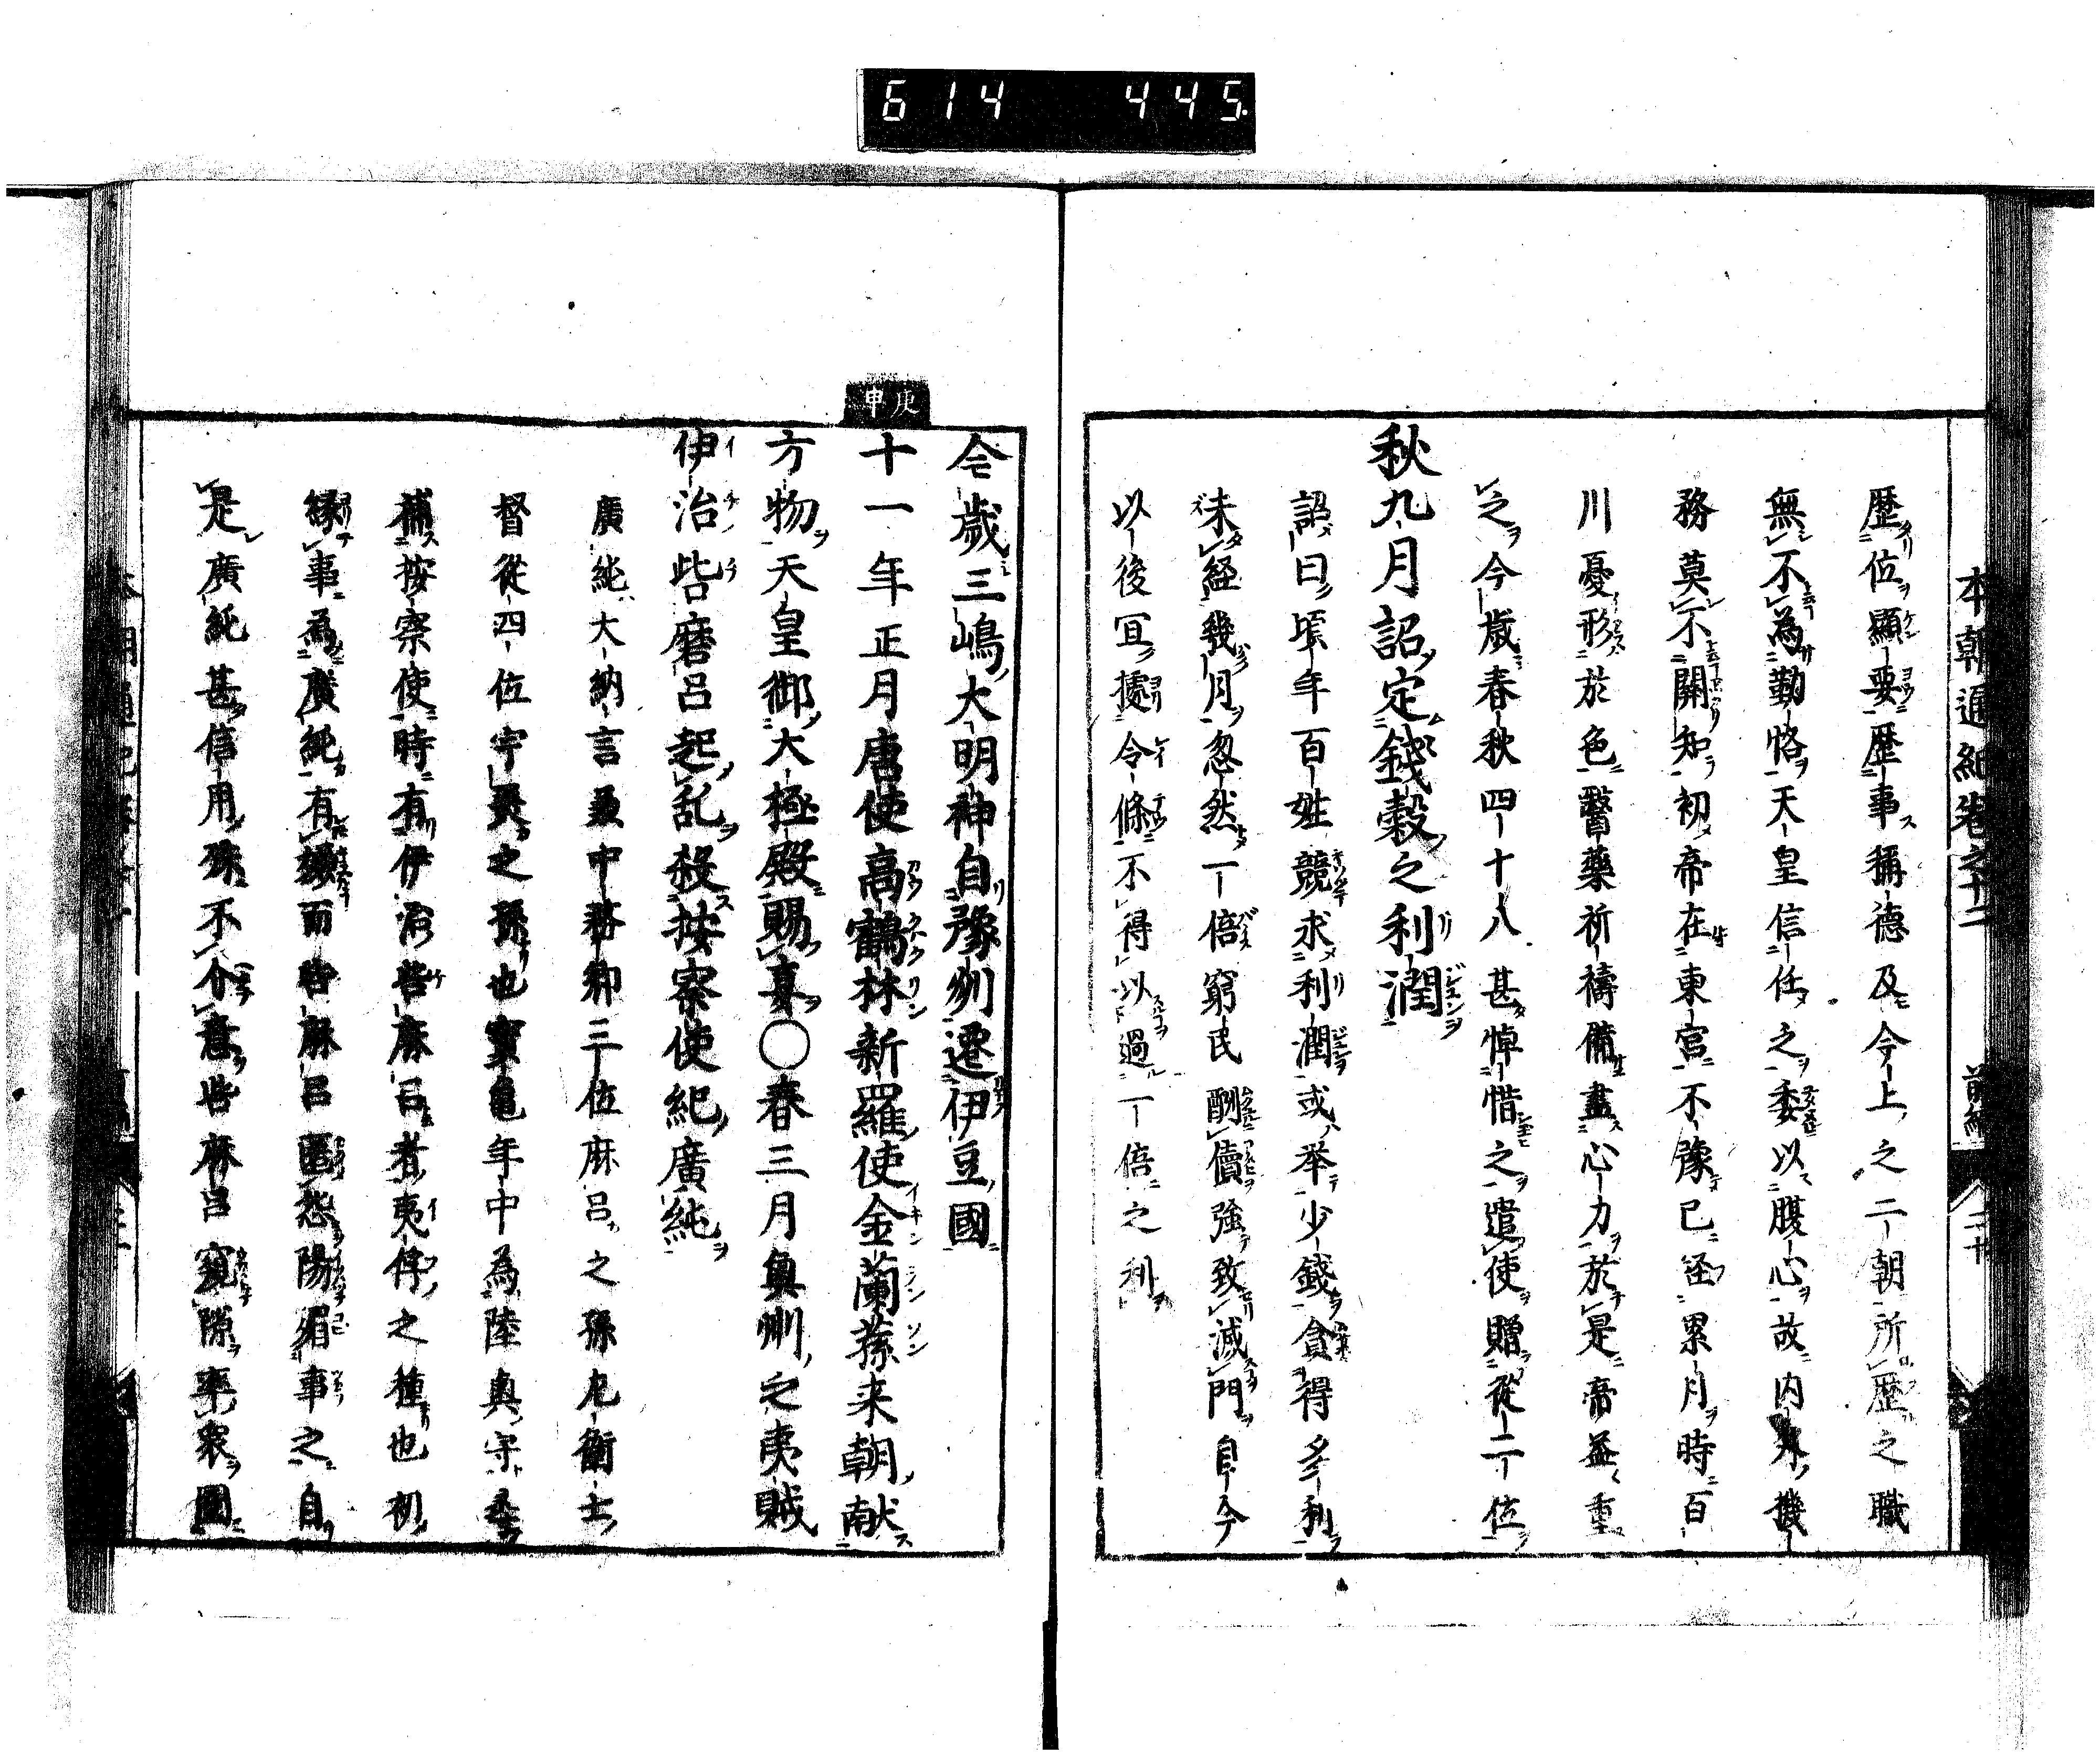 614 445
本朝通紀卷之十二 前編 二十
歴位顯要歴事稱德及今上之二朝所歴之職
無不為勤恪天皇信任之委以腹心故内外機
務莫不關知初帝在東宮不豫已経累月時百
川憂形於色醫藥祈禱備盡心力於是帝益重
之今歲春秋四十八甚悼惜之遣使贈從二位
秋九月詔定錢穀之利潤
詔曰頃年百姓競求利潤或举少錢貪得多利
未経幾月忽然一倍窮民酬償強致滅門自今
以後冝據令條不得以過一倍之利
今歲三嶋大明神自豫州遷伊豆國
庚申
十一年正月唐使高鶴林新羅使金蘭蓀来朝献
方物天皇御大極殿賜宴〇春三月奥州之夷賊
伊治呰磨呂起乱殺按察使紀廣純
廣純大納言兼中務卿三位麻呂之孫左衛士
督從四位宇美之孫也寳亀年中為陸奥守尋
補按察使時有伊治呰麻呂者夷俘之種也初
縁事為廣純有嫌而呰麻呂匿怨陽媚事之自
是廣純甚信用殊不介意呰麻呂窺隙率衆圍